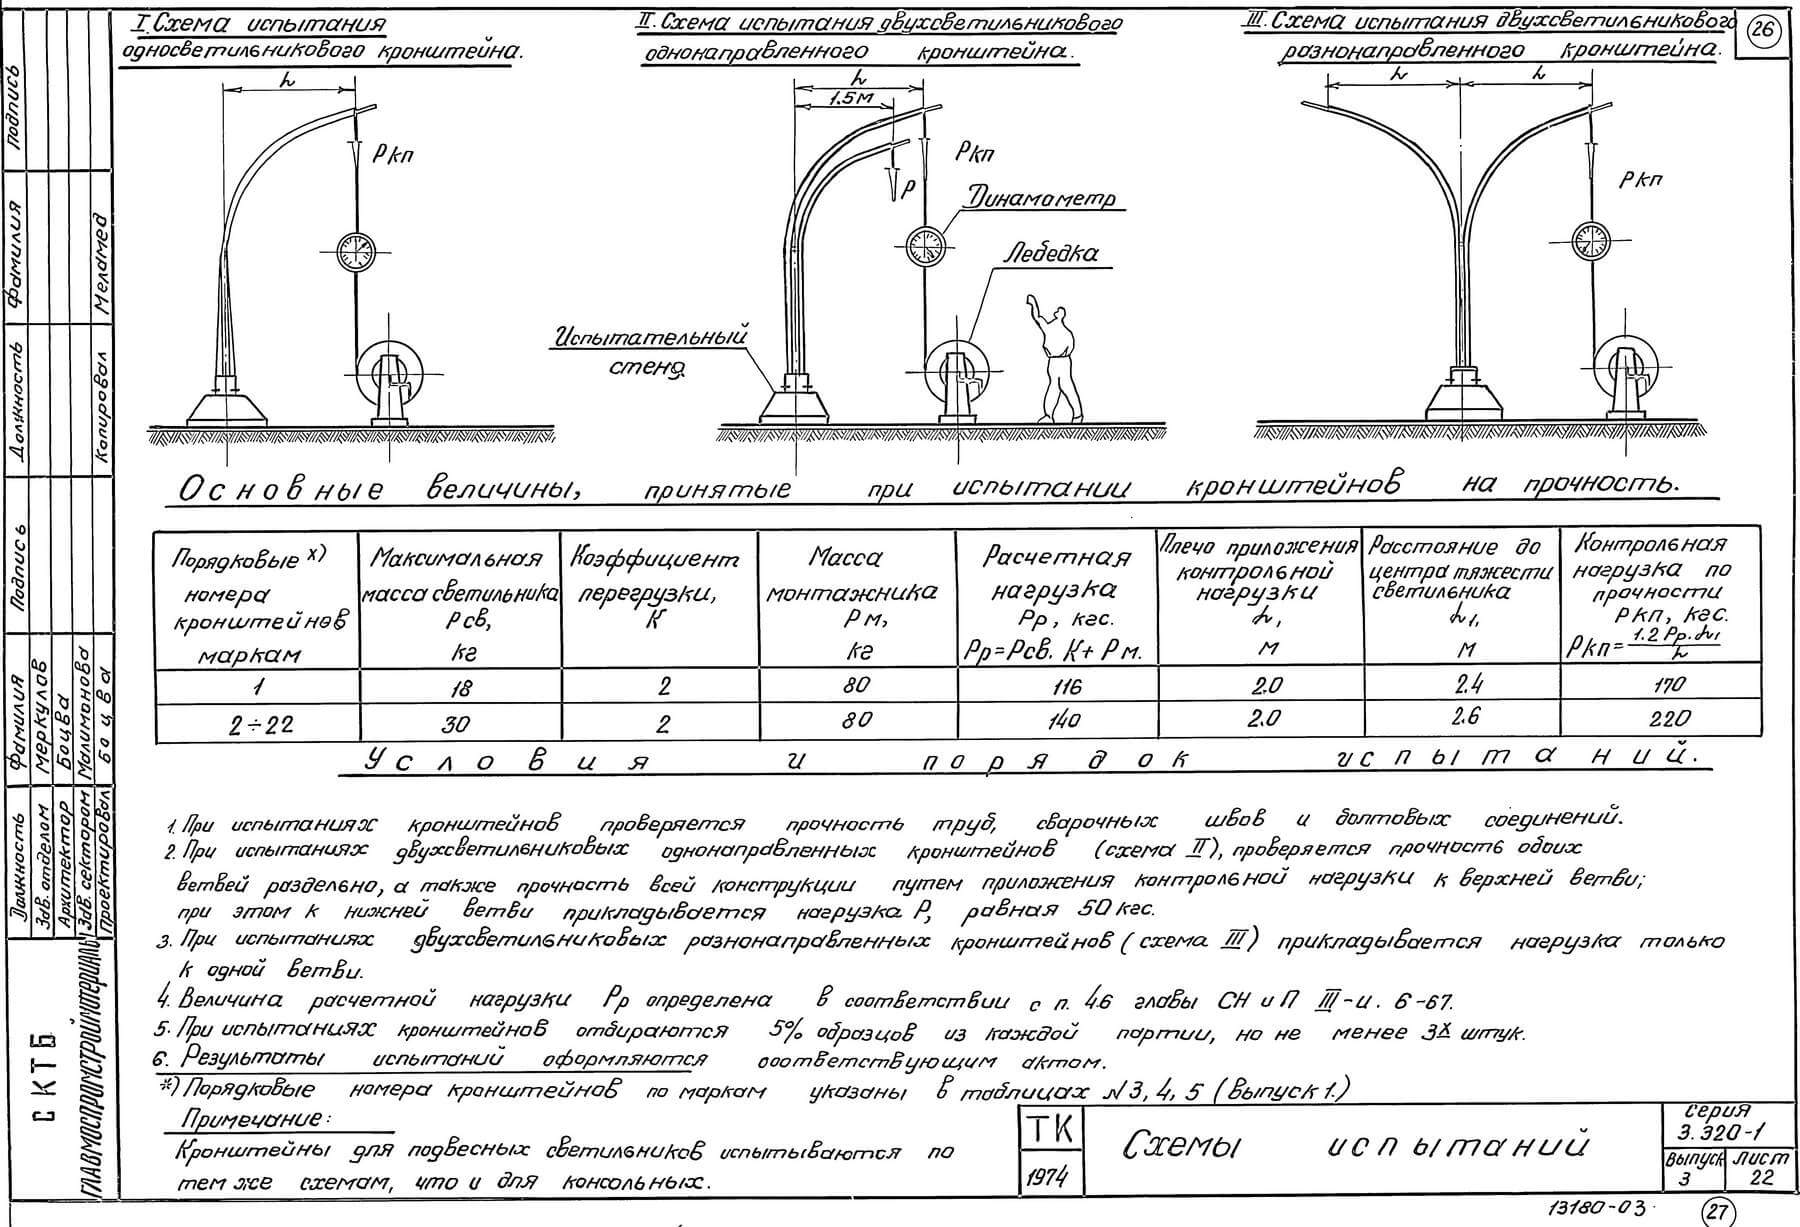 I. Схема испытания
односветильникового кронштейна.
h
Ркп
II. Схема испытания двухсветильникового
однонаправленного кронштейна.
h
1.5м
Ркп
Р
Динамометр
Лебедка
Испытательный
стенд
III. Схема испытания двухсветильникового
разнонаправленного кронштейна.
h h
Ркп
26
Основные величины, принятые при испытании кронштейнов на прочность.
Порядковые х)
номера
кронштейнов
маркам
Максимальная
масса светильника
Рсв,
кг
Коэффициент
перегрузки,
К
Масса
монтажника
Рм,
кг
Расчетная
нагрузка
Рр, кгс.
Рр=Рсв. К+Рм.
Плечо приложения
контрольной
нагрузки
h,
м
Расстояние до
центра тяжести
светильника
h1,
м
Контрольная
нагрузка по
прочности
Ркп, кгс.
Ркп= 1.2 Рр.h1 / h
1 18 2 80 116 2.0 2.4 170
2÷22 30 2 80 140 2.0 2.6 220
Условия и порядок испытаний.
1. При испытаниях кронштейнов проверяется прочность труб, сварочных швов и болтовых соединений.
2. При испытаниях двухсветильниковых однонаправленных кронштейнов (схема II), проверяется прочность обоих
ветвей раздельно, а также прочность всей конструкции путем приложения контрольной нагрузки к верхней ветви;
при этом к нижней ветви прикладывается нагрузка Р, равная 50 кгс.
3. При испытаниях двухсветильниковых разнонаправленных кронштейнов (схема III) прикладывается нагрузка только
к одной ветви.
4. Величина расчетной нагрузки Рр определена в соответствии с п. 4.6 главы СН и П III-и. 6-67.
5. При испытаниях кронштейнов отбираются 5% образцов из каждой партии, но не менее 3х штук.
6. Результаты испытаний оформляются соответствующим актом.
*) Порядковые номера кронштейнов по маркам указаны в таблицах N 3, 4, 5 (выпуск 1.)
Примечание:
Кронштейны для подвесных светильников испытываются по
тем же схемам, что и для консольных.
ТК
1974
Схемы испытаний
серия
3.320-1
выпуск
3
лист
22
13180-03
27
Подпись
Фамилия
Меламед
Должность
Копировал
Подпись
Фамилия
Меркулов
Боцва
Малиманова
Боцва
Должность
Зав. отделом
Архитектор
Зав. сектором
Проектировал
СКТБ
ГЛАВМОСПРОМСТРОЙМАТЕРИАЛЫ